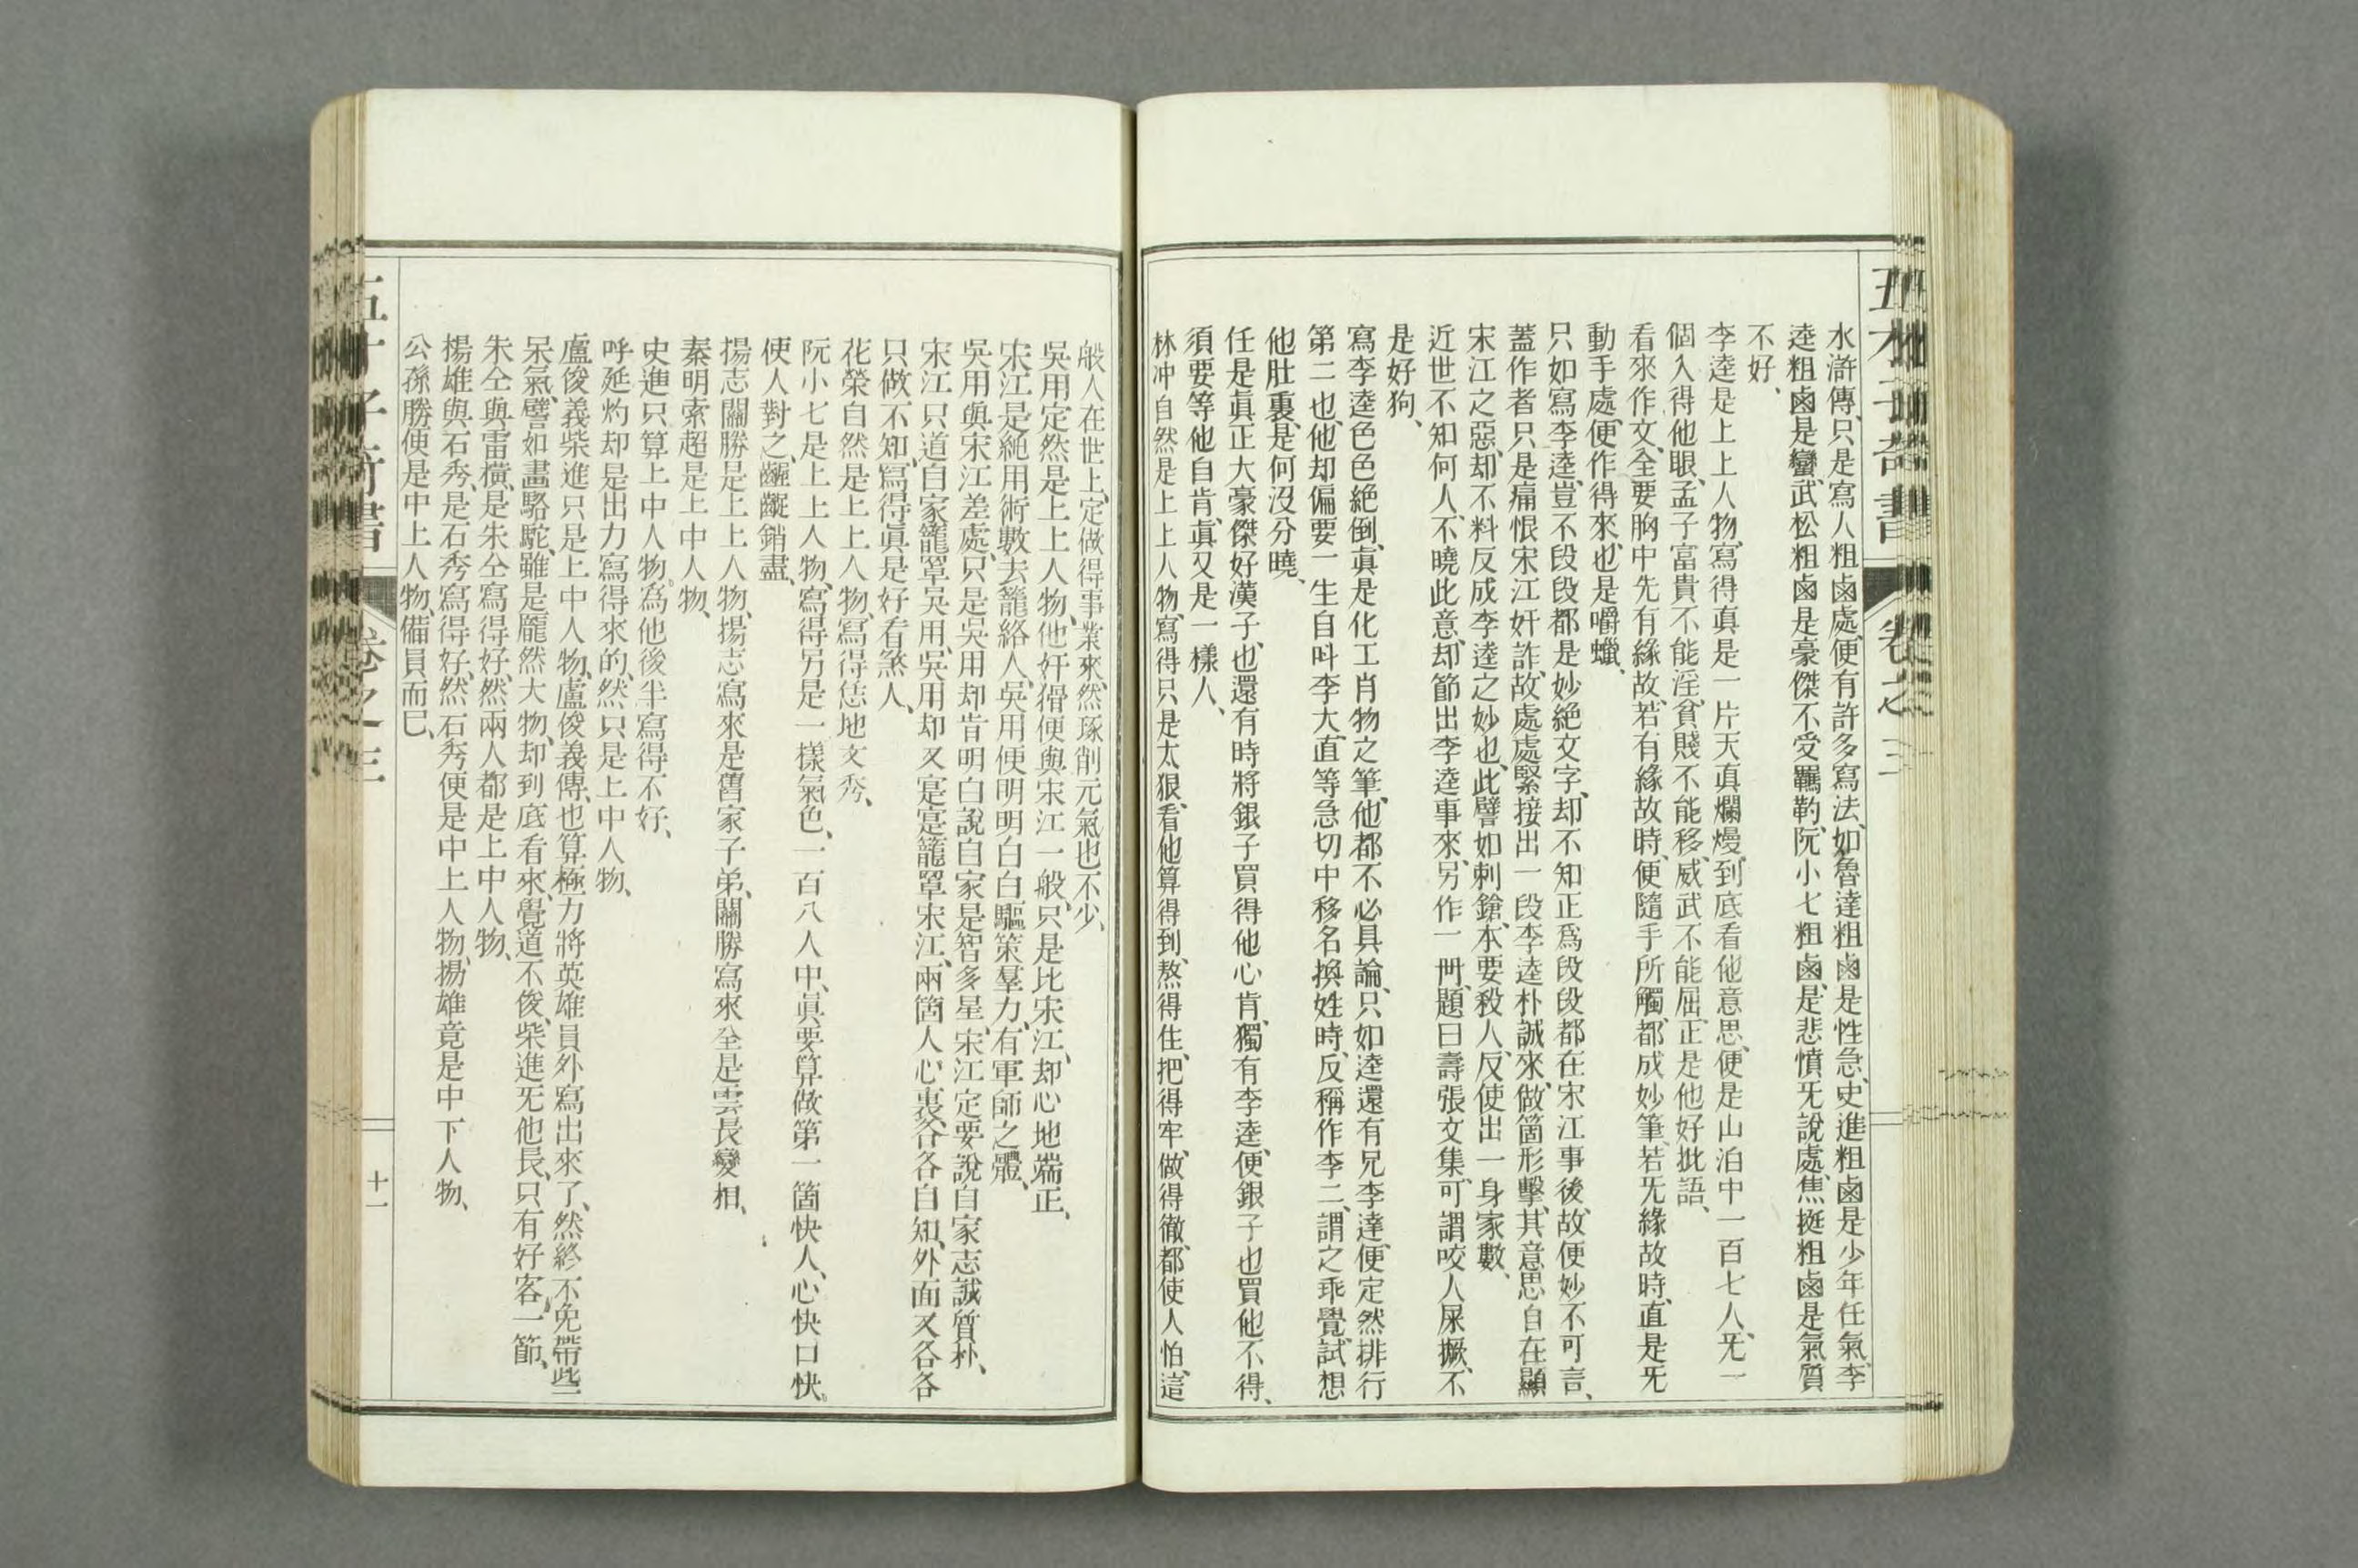 水滸傳、只是寫人粗鹵處、便有許多寫法、如魯達粗鹵是性急、史進粗鹵是少年任氣、李
逵粗鹵是蠻、武松粗鹵是豪傑不受羈靮、阮小七粗鹵是悲憤旡說處、焦挺粗鹵是氣質
不好、
李逵是上上人物、寫得真是一片天真爛熳、到底看他意思、便是山泊中一百七人、旡一
個入得他眼、孟子富貴不能淫、貧賤不能移、威武不能屈、正是他好批語、
看來作文、全要胸中先有緣故、若有緣故時、便隨手所觸、都成妙筆、若旡緣故時、直是旡
動手處、便作得來、也是嚼蠟、
只如寫李逵、豈不段段都是妙絕文字、却不知正爲段段都在宋江事後、故便妙不可言、
蓋作者只是痛恨宋江奸詐、故處處緊接出一段李逵朴誠來、做箇形擊、其意思自在顯
宋江之惡、却不料反成李逵之妙也、此譬如刺鎗、本要殺人、反使出一身家數、
近世不知何人、不曉此意、却節出李逵事來、另作一冊、題曰壽張文集、可謂咬人屎撅、不
是好狗、
寫李逵色色絕倒、真是化工肖物之筆、他都不必具論、只如逵還有兄李達、便定然排行
第二也、他却偏要一生自呌李大、直等急切中移名換姓時、反稱作李二、謂之乖覺、試想
他肚裏、是何沒分曉、
任是真正大豪傑好漢子、也還有時將銀子買得他心肯、獨有李逵、便銀子也買他不得、
須要等他自肯、真又是一樣人、
林冲自然是上上人物、寫得只是太狠、看他算得到、熬得住、把得牢、做得徹、都使人怕、這
般人在世上、定做得事業來、然琢削元氣也不少、
吳用定然是上上人物、他奸猾便與宋江一般、只是比宋江、却心地端正、
宋江是純用術數去籠絡人、吳用便明明白白驅策羣力、有軍師之體、
吳用與宋江差處、只是吳用却肯明白說自家是智多星、宋江定要說自家志誠質朴、
宋江只道自家籠罩吳用、吳用却又寔寔籠罩宋江、兩箇人心裏、各各自知、外面又各各
只做不知、寫得真是好看煞人、
花榮自然是上上人物、寫得恁地文秀、
阮小七是上上人物、寫得另是一樣氣色、一百八人中、真要算做第一箇快人、心快口快。
使人對之、齷齪銷盡、
揚志關勝是上上人物、揚志寫來是舊家子弟、關勝寫來全是雲長變相、
秦明索超是上中人物、
史進只算上中人物。爲他後半寫得不好、
呼延灼却是出力寫得來的、然只是上中人物、
盧俊義柴進只是上中人物、盧俊義傳、也算極力將英雄員外寫出來了、然終不免帶些
呆氣、譬如畫駱駝、雖是龐然大物、却到底看來、覺道不俊、柴進旡他長、只有好客一節、
朱仝與雷橫、是朱仝寫得好、然兩人都是上中人物、
楊雄與石秀、是石秀寫得好、然石秀便是中上人物、揚雄竟是中下人物、
公孫勝便是中上人物、備員而已、
卷之三
十一